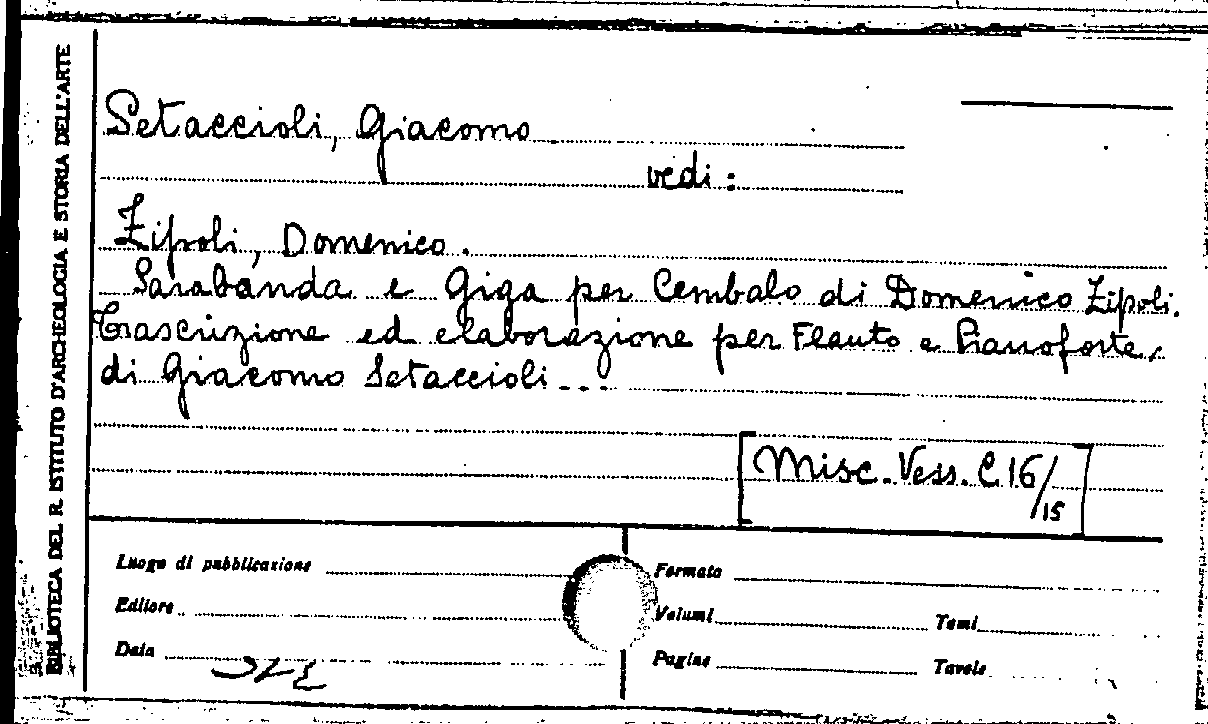 BIBLIOTECA DEL R. ISTITUTO D'ARCHEOLOGIA E STORIA DELL'ARTE
Setaccioli, Giacomo
vedi:
Zipoli, Domenico.
Sarabanda e Giga per Cembalo di Domenico Zipoli.
Trascrizione ed elaborazione per Flauto e Pianoforte,
di Giacomo Setaccioli...
Misc. Vess. C 16/15
Luogo di pubblicazione
Formato
Editore
Volumi Tomi
Data
Pagine Tavole